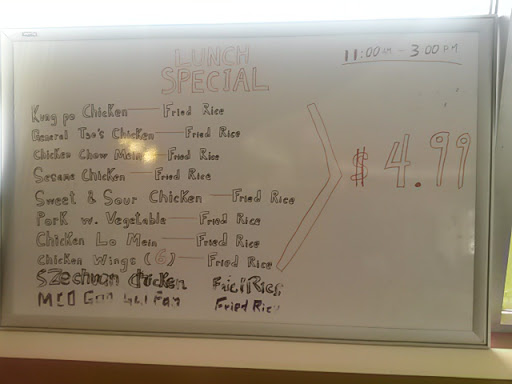 LUNCH
SPECIAL
11:00 AM - 3:00 PM
Kung po Chicken — Fried Rice
General Tso's Chicken — Fried Rice
Chicken Chow Mein — Fried Rice
Sesame Chicken — Fried Rice
Sweet & Sour Chicken — Fried Rice
Pork w. Vegetable — Fried Rice
Chicken Lo Mein — Fried Rice
Chicken Wings (6) — Fried Rice
$4.99
Szechuan chicken Fried Rice
Moo Goo Gai Pan Fried Rice